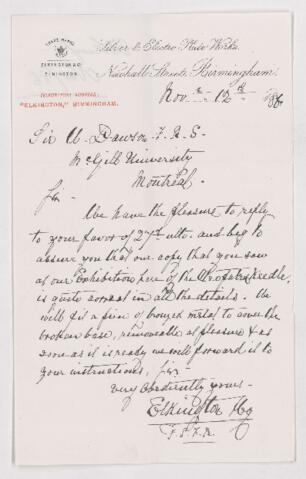 TRADE MARKS
ELKINGTON & CO
Silver & Electro Plate Works.
Newhall Street, Birmingham.
TELEGRAPHIC ADDRESS:
"ELKINGTON," BIRMINGHAM.
Novr 12th 1886
Sir W. Dawson F.R.S.
McGill University
Montreal
Sir
We have the pleasure to reply
to your favor of 27th ulto. and beg to
assure you that our copy that you saw
at our Exhibition here of the Needle,
is quite correct in all the details. We
will fix a piece of bronzed metal to cover the
broken base, removeable at pleasure & as
soon as it is ready we will forward it to
your instructions, Sir
Very obediently yours
Elkington & Co